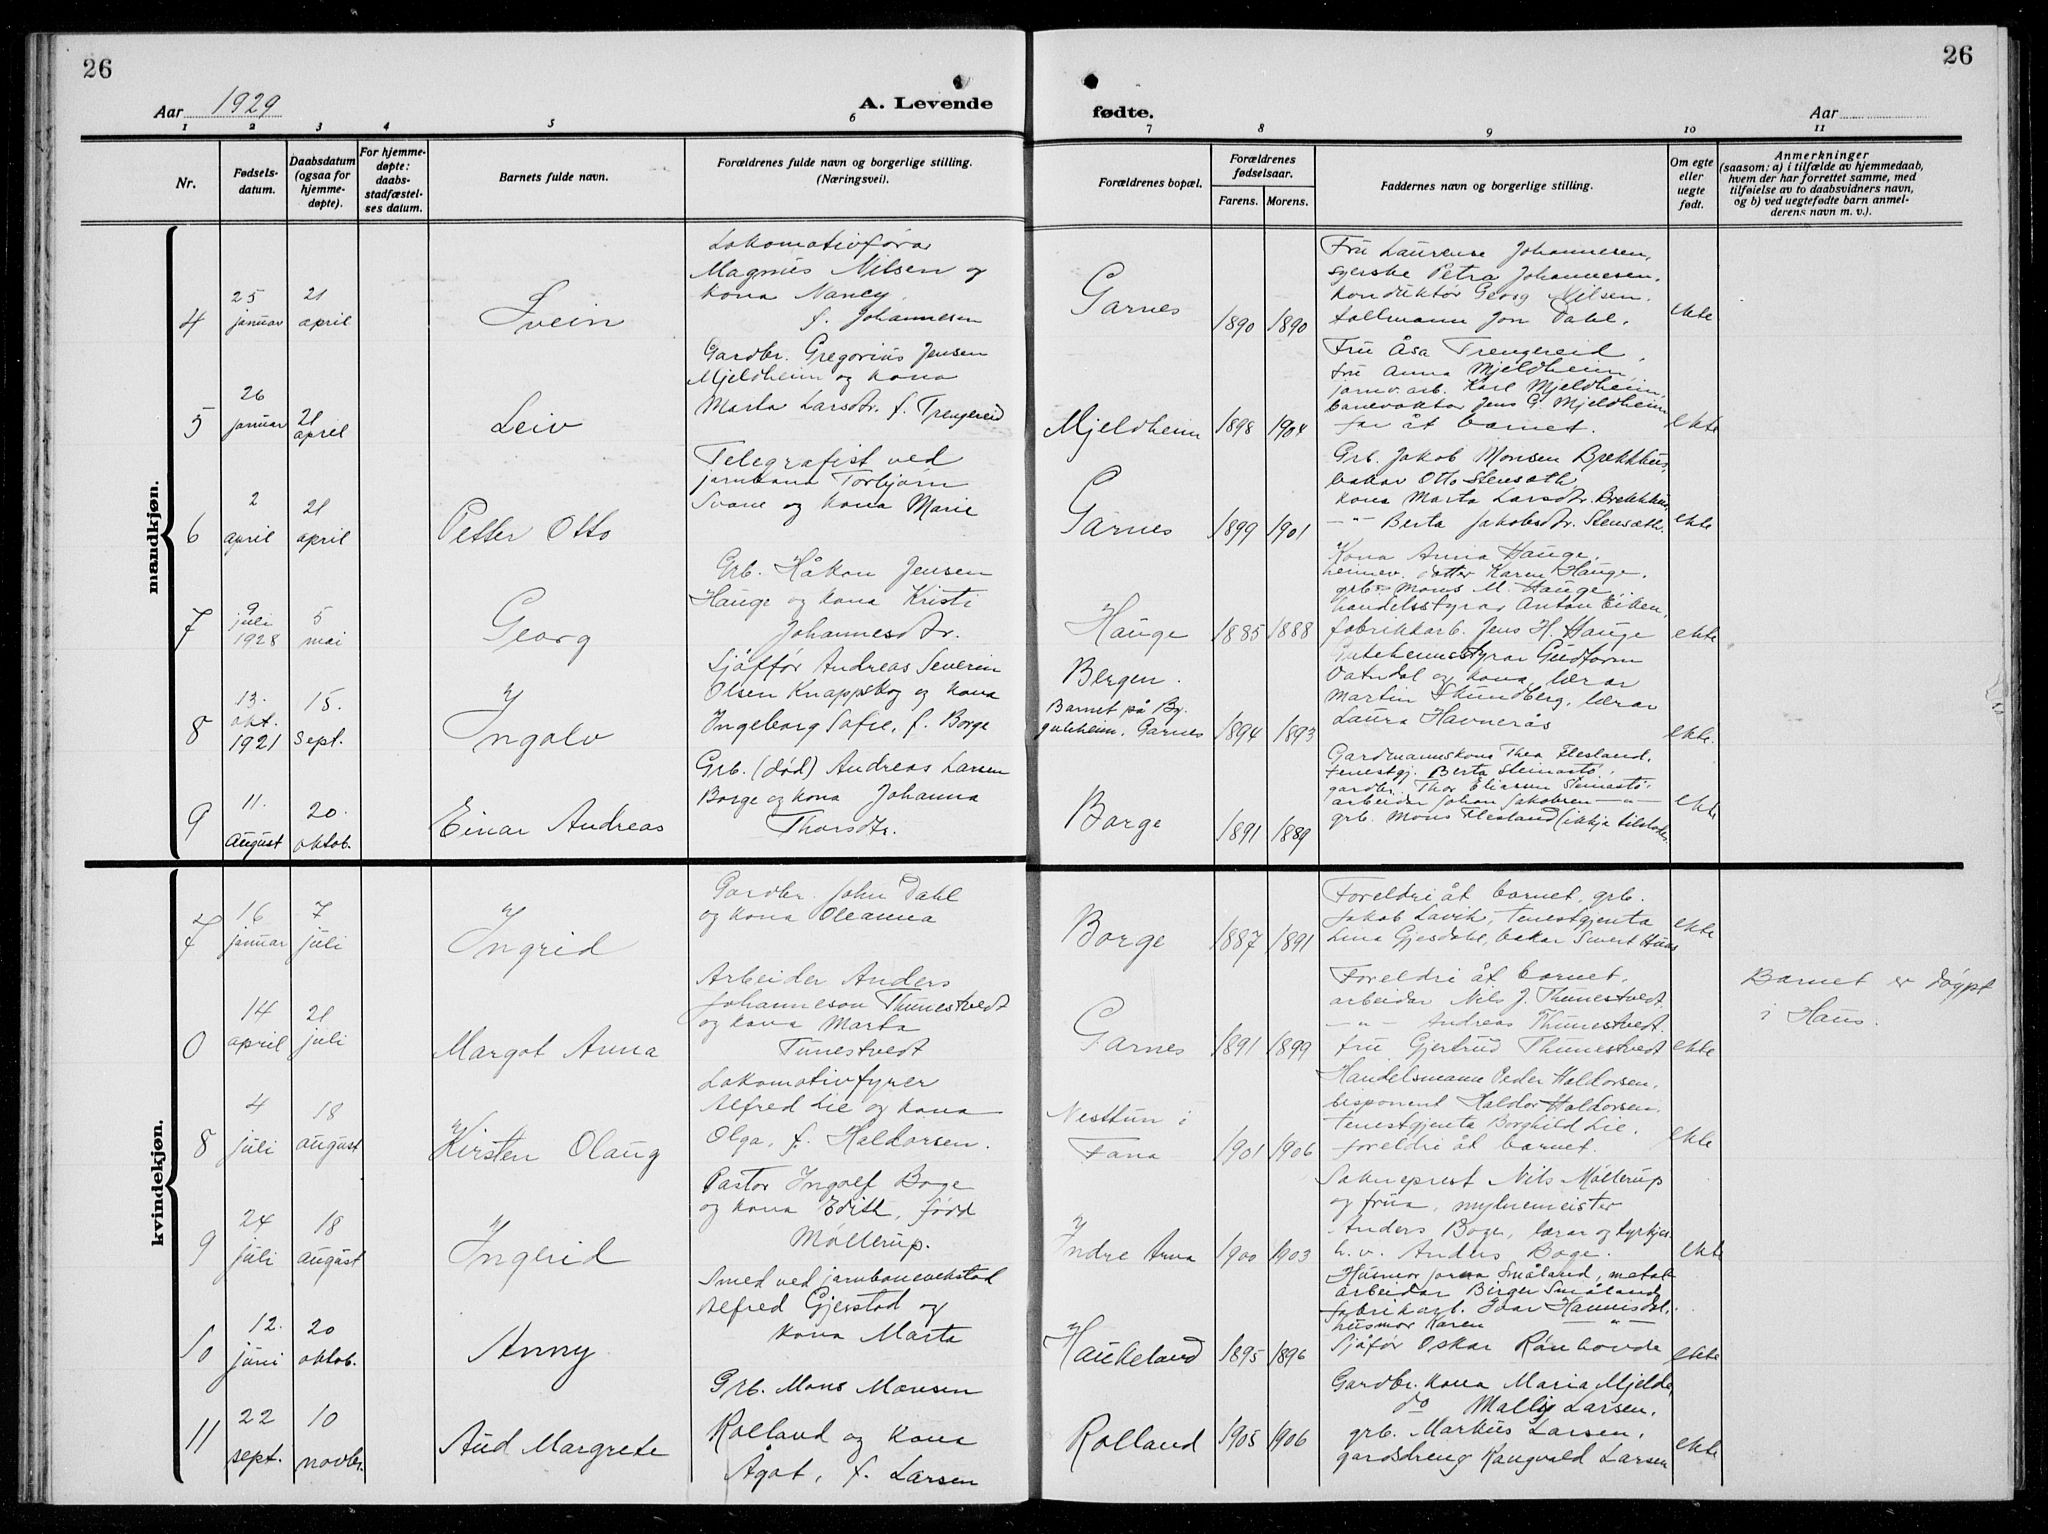 26
Aar 1929
A. Levende
1 2 3 4 5 6
Nr.
Fødsels-
datum.
Daabsdatum
(ogsaa for
hjemme-
døpte).
For hjemme-
døpte:
daabs-
stadfæstel-
ses datum.
Barnets fulde navn.
Forældrenes fulde navn og borgerlige stilling.
(Næringsvei).
mandkjøn.
4
25
januar
21
april
Svein
Lokomotivførar
Magnus Nilsen og
kona Nancy,
f. Johannesen
5
26
januar
21
april
Leiv
Gardbr. Gregorius Jensen
Mjeldheim og kona
Marta Larsdtr. f. Trengereid
6
2
april
21
april
Petter Otto
Telegrafist ved
jarnbana Torbjørn
Svane og kona Marie
7
9
juli
1928
5
mai
Georg
Grb. Håkon Jensen
Hauge og kona Kristi
Johannesdtr.
8
13.
okt.
1921
15.
sept.
Ingolv
Sjåfför Andreas Severin
Olsen Knappskog og kona
Ingeborg Sofie, f. Borge
9
11.
August
20.
oktob.
Einar Andreas
Grb. (död) Andreas Larsen
Borge og kona Johanna
Thorsdtr.
kvindekjøn.
7
16
januar
7
juli
Ingrid
Gardbr. John Dahl
og kona Oleanna
0
14
april
21
juli
Margot Anna
Arbeider Anders
Johanneson Thunestvedt
og kona Marta
Tunestvedt
8
4
juli
18
august
Kirsten Olaug
Lokomotivfyrer
Alfred Lie og kona
Olga, f. Haldorsen.
9
24
juli
18
august
Ingerid
Pastor Ingolf Boge
og kona Edith, född
Møllerup.
10
12.
juni
20
oktob.
Anny
Smed ved jarnbanevekstad
Alfred Gjerstad og
kona Marta
11
22
sept.
10
novbr.
Aud Margrete
Grb. Mons Monsen
Rolland og kona
Ågot, f. Larsen
26
fødte.
Aar
7 8 9 10 11
Forældrenes bopæl.
Forældrenes
fødselsaar.
Farens. Morens.
Faddernes navn og borgerlige stilling.
Om egte
eller
uegte
født.
Anmerkninger
(saasom: a) i tilfælde av hjemmedaab,
hvem der har forrettet samme, med
tilføielse av to daabsvidners navn,
og b) ved uegtefødte barn anmel-
derens navn m. v.).
Garnes
1890 1890
Fru Laurense Johannesen,
syerske Petra Johannesen,
konduktör Georg Nilsen.
tollmann Jon Dahl.
ekte
Mjeldheim
1898 1904
Fru Åsa Trengereid,
fru Anna Mjeldheim,
jarnv. arb. Karl Mjeldheim,
banevaktor Jens G. Mjeldheim
far åt barnet.
ekte
Garnes
1899 1901
Grb. Jakob Monsen Brekkhus,
bakar Otto Stensæth,
kona Marta Larsdtr. Brekkhus
—"— Berta Jakobsdtr. Stensæth.
ekte
Hauge
1885 1888
Kona Anna Hauge,
heimev. dotter Karen Hauge.
grb. Mons M. Hauge.
handelsstyrar Anton Eiken,
fabrikkarb. Jens H. Hauge
ekte
Bergen.
Barnet på By.
guteheim, Garnes
1894 1893
Guteheimsstyrar Gudtorm
Vatndal og kona, lærar
Martin Strundberg, lærar
Laura Havnerås
ekte.
Borge
1891 1889
Gardmannskona Thea Flesland.
tenestgj. Berta Steinastö.
gardbr. Thor Eliassen Steinastö.
arbeidar Johan Jakobsen —"—
grb. Mons Flesland (ikkje tilstades.
ekte
Borge
1887 1891
Foreldri åt barnet, grb.
Jakob Lavik, tenestgjenta
Lina Gjesdal, bakar Sivert Huus
ekte
Garnes
1891 1899
Foreldri åt barnet,
arbeidar Nils J. Thunestvedt
—"— Andreas Thunestvedt.
fru Gjertrud Thunestvedt
ekte
Barnet er døypt
i Haus.
Nesttun i
Fana
1901 1906
Handelsmann Peder Haldorsen.
disponent Haldor Haldorsen.
tenestgjenta Borghild Lie.
foreldri åt barnet.
ekte
Indre Arna
1900 1903
Sokneprest Nils Møllerup
og frua, mylnemeister
Anders Boge, lærar og kyrkjes.
h. v. Anders Boge.
ekte
Haukeland
1895 1896
Husmor Jorna Småland, metal
arbeidar Birger Småland
fabrikarb. Ivar Hannisdal.
husmor Karen —"—
Sjåför Oskar Rønhovde
ekte
Rolland
1905 1906
Gardbr. kona Maria Mjelde,
do Mally Larsen,
grb. Markus Larsen,
gardsdreng Rangvald Larsen
ekte